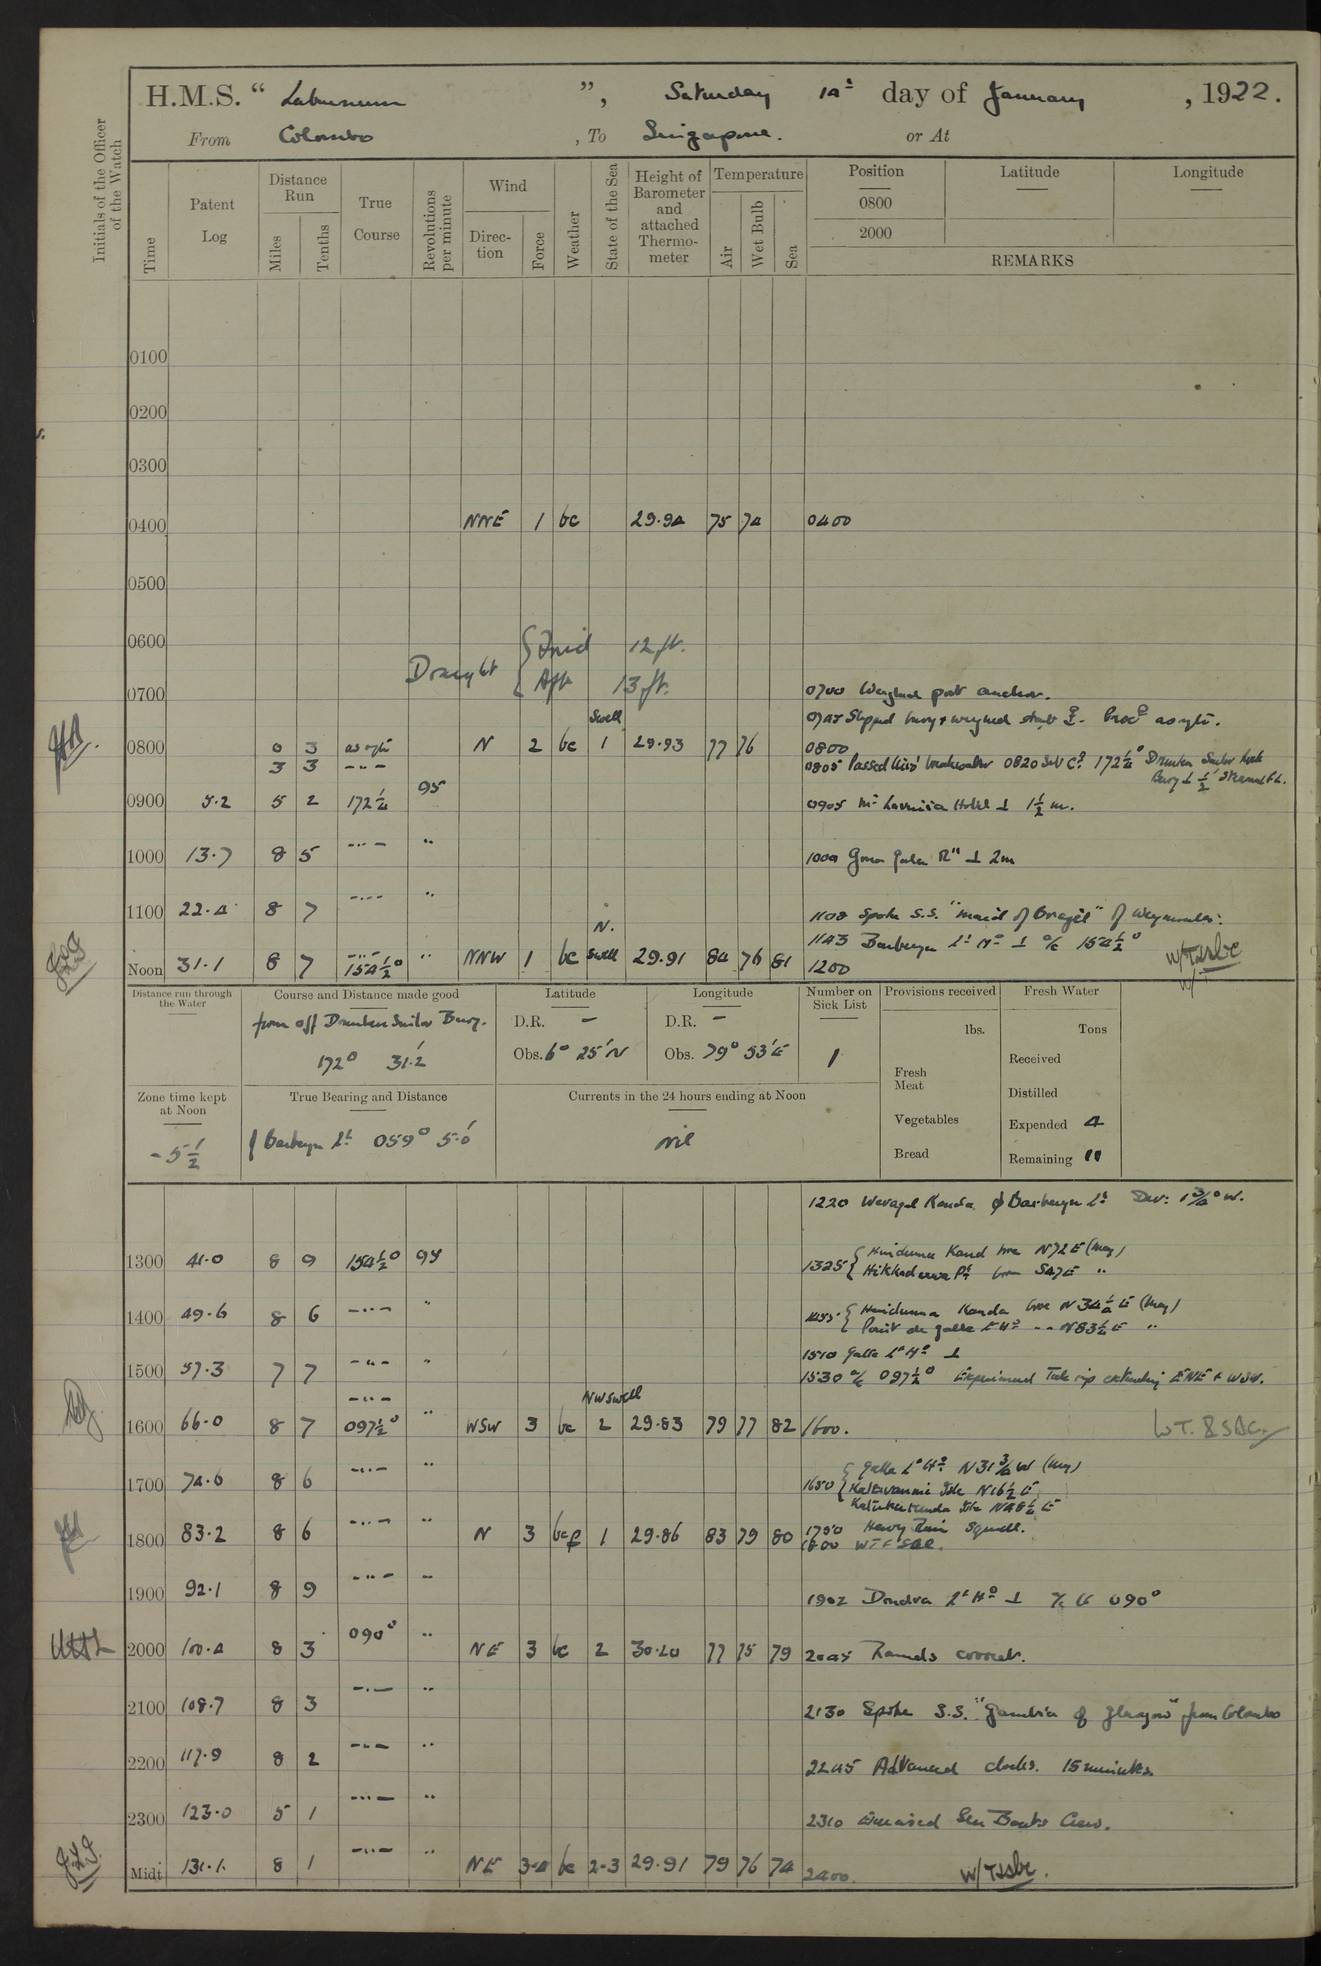 H.M.S. “ Laburnum ”, Saturday 14th day of January, 1922.
From Colombo, To Singapore. or At
Initials of the Officer of the Watch
Time
Patent Log
Distance Run
Miles
Tenths
True Course
Revolutions per minute
Wind
Direction
Force
Weather
State of the Sea
Height of Barometer and attached Thermometer
Temperature
Air
Wet Bulb
Sea
Position
0800
2000
Latitude
Longitude
REMARKS
0100
0200
0300
0400 NNE 1 bc 29.94 75 74 0400
0500
0600
Draught { Fwd 12 ft.
Aft 13 ft.
0700 0700 Weighed port anchor.
Swell 0745 Slipped buoy & weighed
0800 0 3 N 2 bc 1 29.93 77 76 0800
3 3 –··– 0805 Passed breakwater 0820 S/C Co 172¼° Drunken Sailor Rock
Buoy ⊥ ½'
0900 5.2 5 2 172¼ 95 0905 Mt Lavinia Hotel ⊥ 1½ m.
1000 13.7 8 5 –··– " ⊥ 2m
1100 22.4 8 7 –··– " 1108 Spoke S.S. "Maid of Brazil" of
N. 1143 Barberyn Lt Ho ⊥ a/c 154½°
Noon 31.1 8 7 –··– 154½° " NNW 1 bc Swell 29.91 84 76 81 1200
Distance run through the Water
Course and Distance made good
from off Drunken Sailor Buoy.
172° 31.2'
Latitude
D.R. –
Obs. 6° 25' N
Longitude
D.R. –
Obs. 79° 53' E
Number on Sick List
1
Provisions received
lbs.
Fresh Meat
Vegetables
Bread
Fresh Water
Tons
Received
Distilled
Expended 4
Remaining
Zone time kept at Noon
- 5½
True Bearing and Distance
Barberyn Lt. 059° 5.0'
Currents in the 24 hours ending at Noon
nil
1220 Kanda ϕ Barberyn Lt Dev: 1¾° W.
1300 41.0 8 9 154½° 95 1325 { Kand bore N72E (Mag)
Pt. bore S47E "
1400 49.6 8 6 –··– " { Kanda bore N 34¼ E (Mag)
Point de Galle Lt Ho " N83½ E "
1510 Galle Lt Ho ⊥
1500 57.3 7 7 –··– " 1530 a/c 097½° Experienced Tide rip extending ENE & WSW.
–··– NW Swell
1600 66.0 8 7 097½° " WSW 3 bc 2 29.83 79 77 82 1600.
1700 74.6 8 6 –··– " 1650 { Galle Lt Ho N31¾W (Mag)
Isle N16½ E
Isle N48½ E
1750 Heavy Rain Squall.
1800 83.2 8 6 –··– " N 3 bcq 1 29.86 83 79 80 1800
1900 92.1 8 9 –··– " 1902 Dondra Lt Ho ⊥ a/c to 090°
2000 100.4 8 3 090° " NE 3 bc 2 30.20 77 75 79 2045 Rounds correct.
2100 108.7 8 3 –··– " 2130 Spoke S.S. "Gambia of Glasgow" from Colombo
2200 117.9 8 2 –··– " 2245 Advanced clocks. 15 minutes.
2300 123.0 5 1 –··– " 2310 Exercised Sea Boats Crew.
Midt 131.1 8 1 –··– " NE 3-4 bc 2-3 29.91 79 76 74 2400.